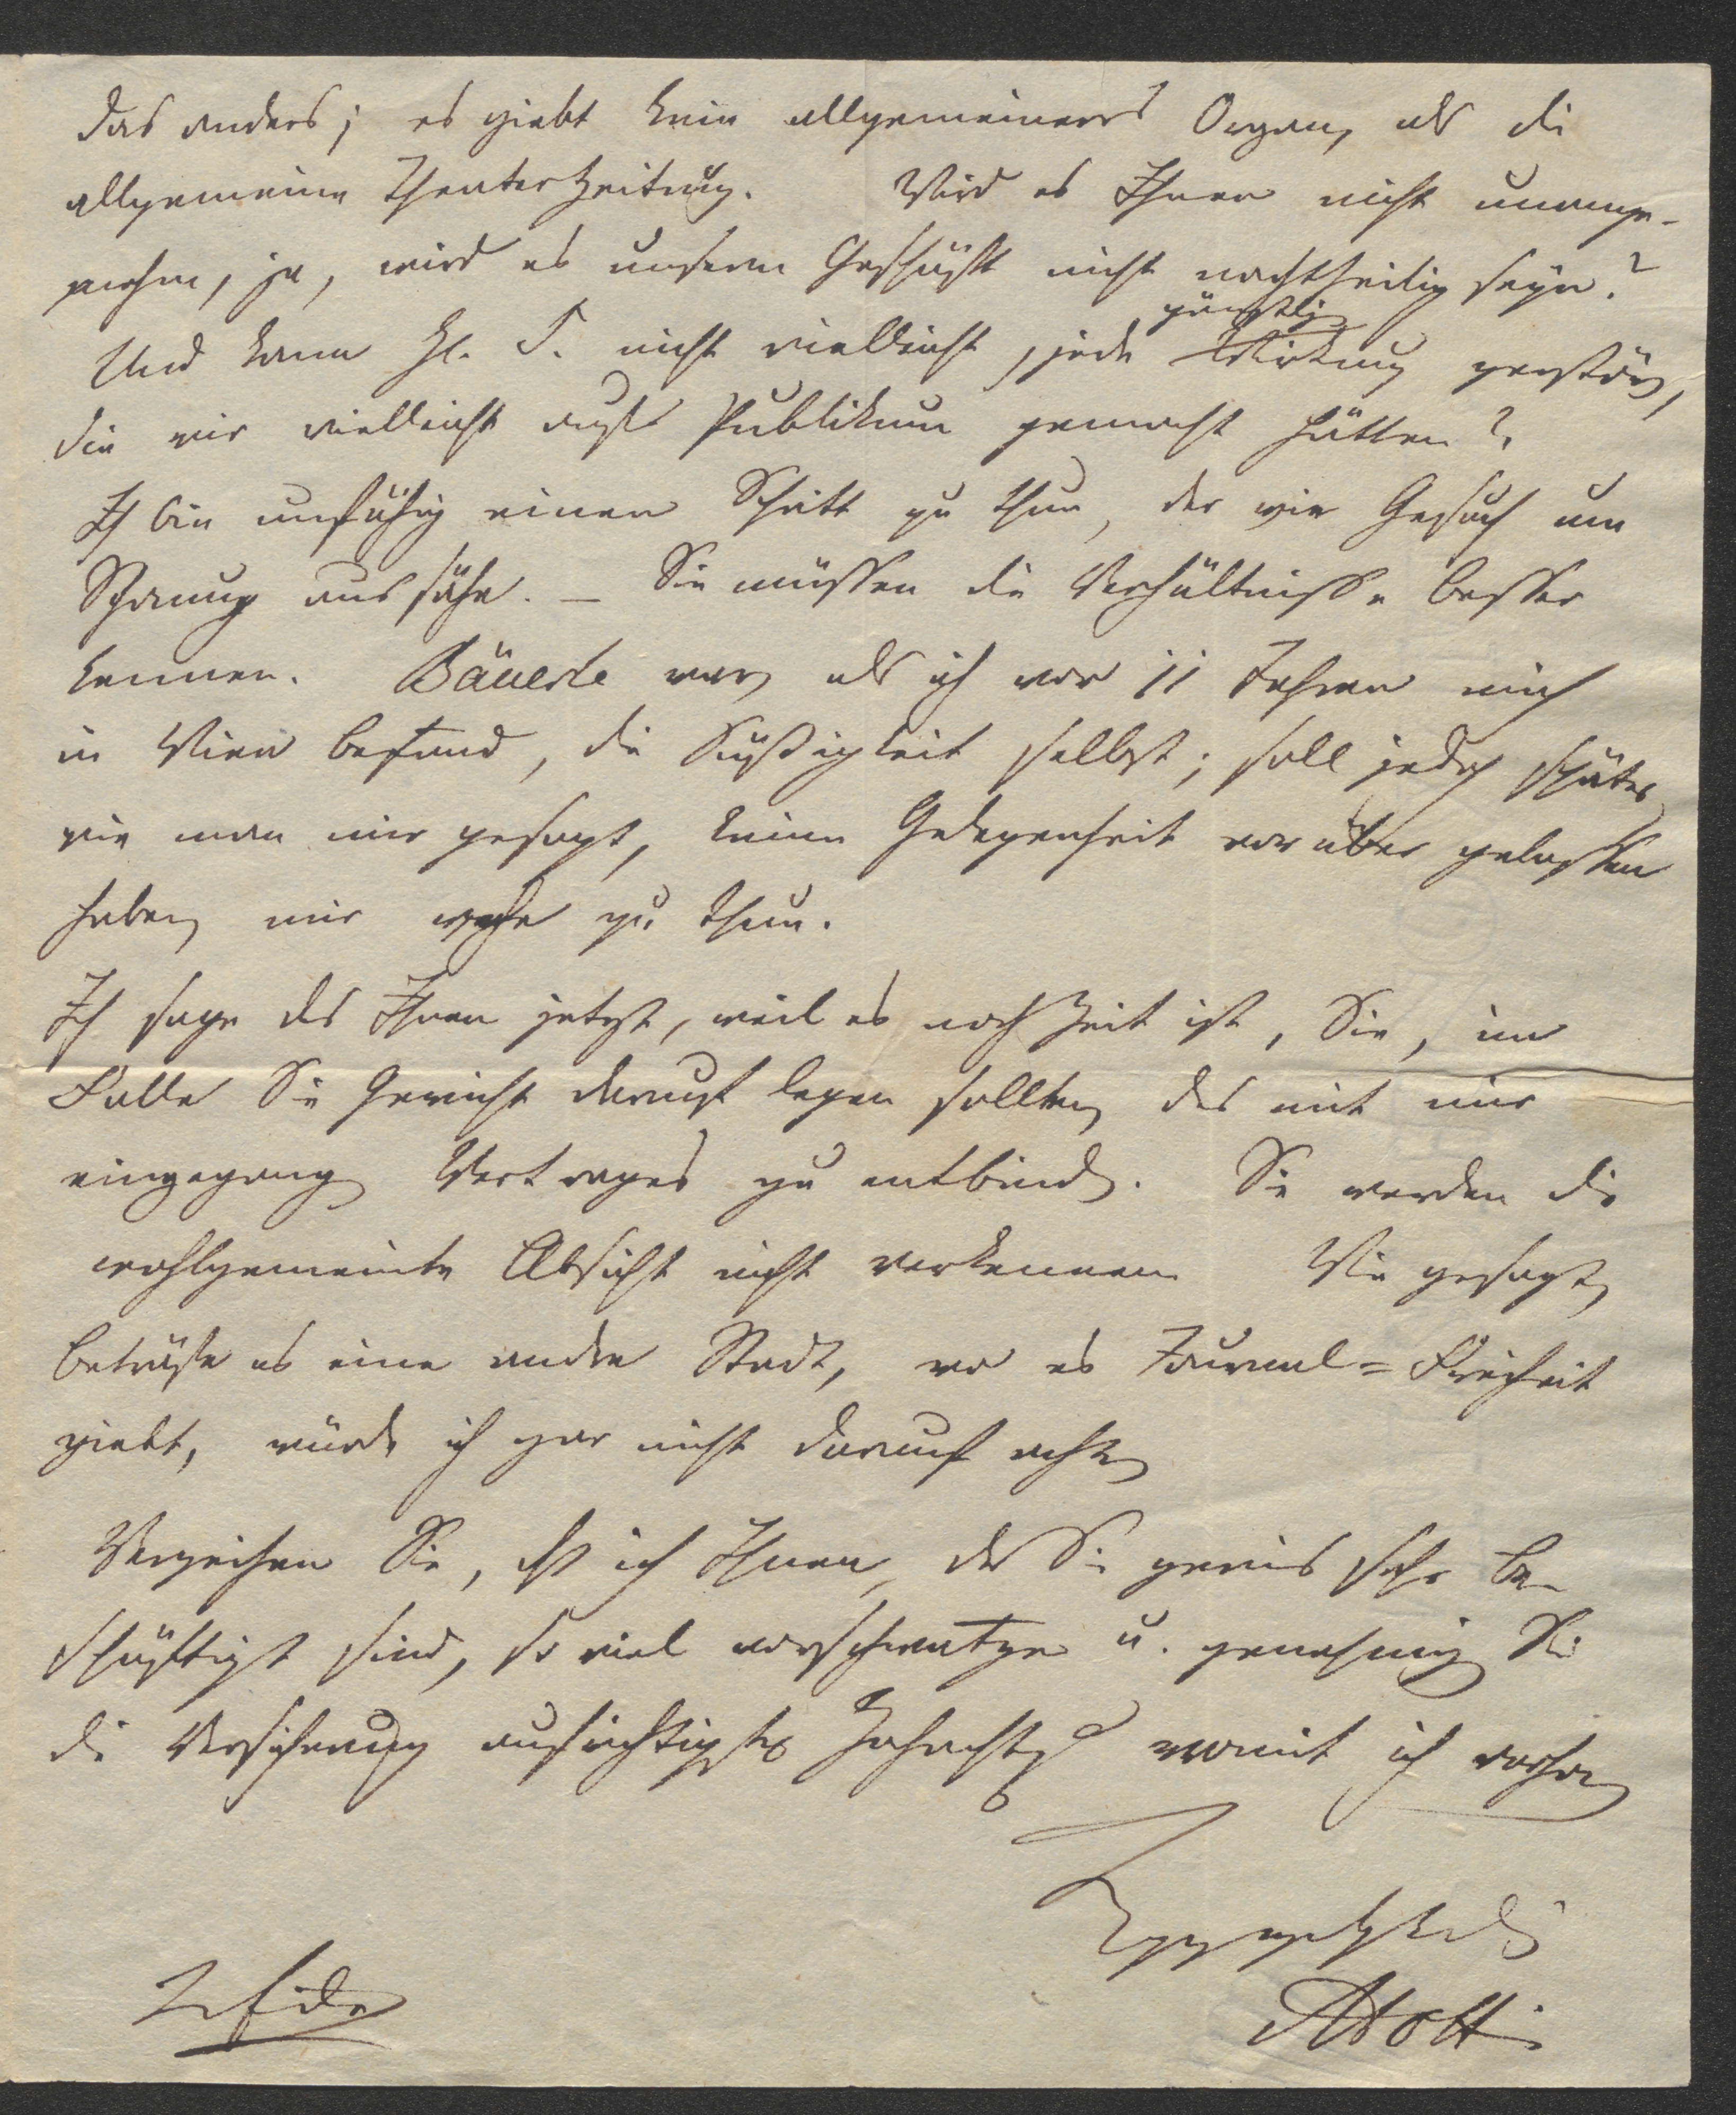 das anders; es giebt kein allgemeineres Organ, als die
allgemeine Theaterzeitung. Wird es Ihnen nicht unange-
nehm, ja, wird es unserm Geschäft nicht nachtheilig seyn?
günstige
Und kann H. S. nicht vielleicht, jede Wirkung zerstören,
die wir vielleicht aufs Publikum gemacht hätten?
Ich bin unfähig einen Schritt zu thun, der wie Gesuch um
Schonung aussähe. – Sie müssen die Verhältnisse besser
kennen. Bäuerle war, als ich vor 11 Jahren mich
in Wien befand, die Süßigkeit selbst; soll jedoch später
wie man mir gesagt, keine Gelegenheit vorüber gelassen
haben, mir wehe zu thun.
Ich sage das Ihnen jetzt, weil es noch Zeit ist, Sie, im
Falle Sie Gewicht darauf legen sollten, des mit mir
eingegangenen Vertrages zu entbinden. Sie werden die
wohlgemeinte Absicht nicht verkennen. Wie gesagt,
beträfe es eine andre Stadt, wo es Journal=Freiheit
giebt, würde ich gar nicht darauf achten
Verzeihen Sie, daß ich Ihnen, da Sie gewis sehr be-
schäftigt sind, so viel vorschwatze u. genehmigen Sie
die Versicherung aufrichtigster Hochachtung womit ich verharre